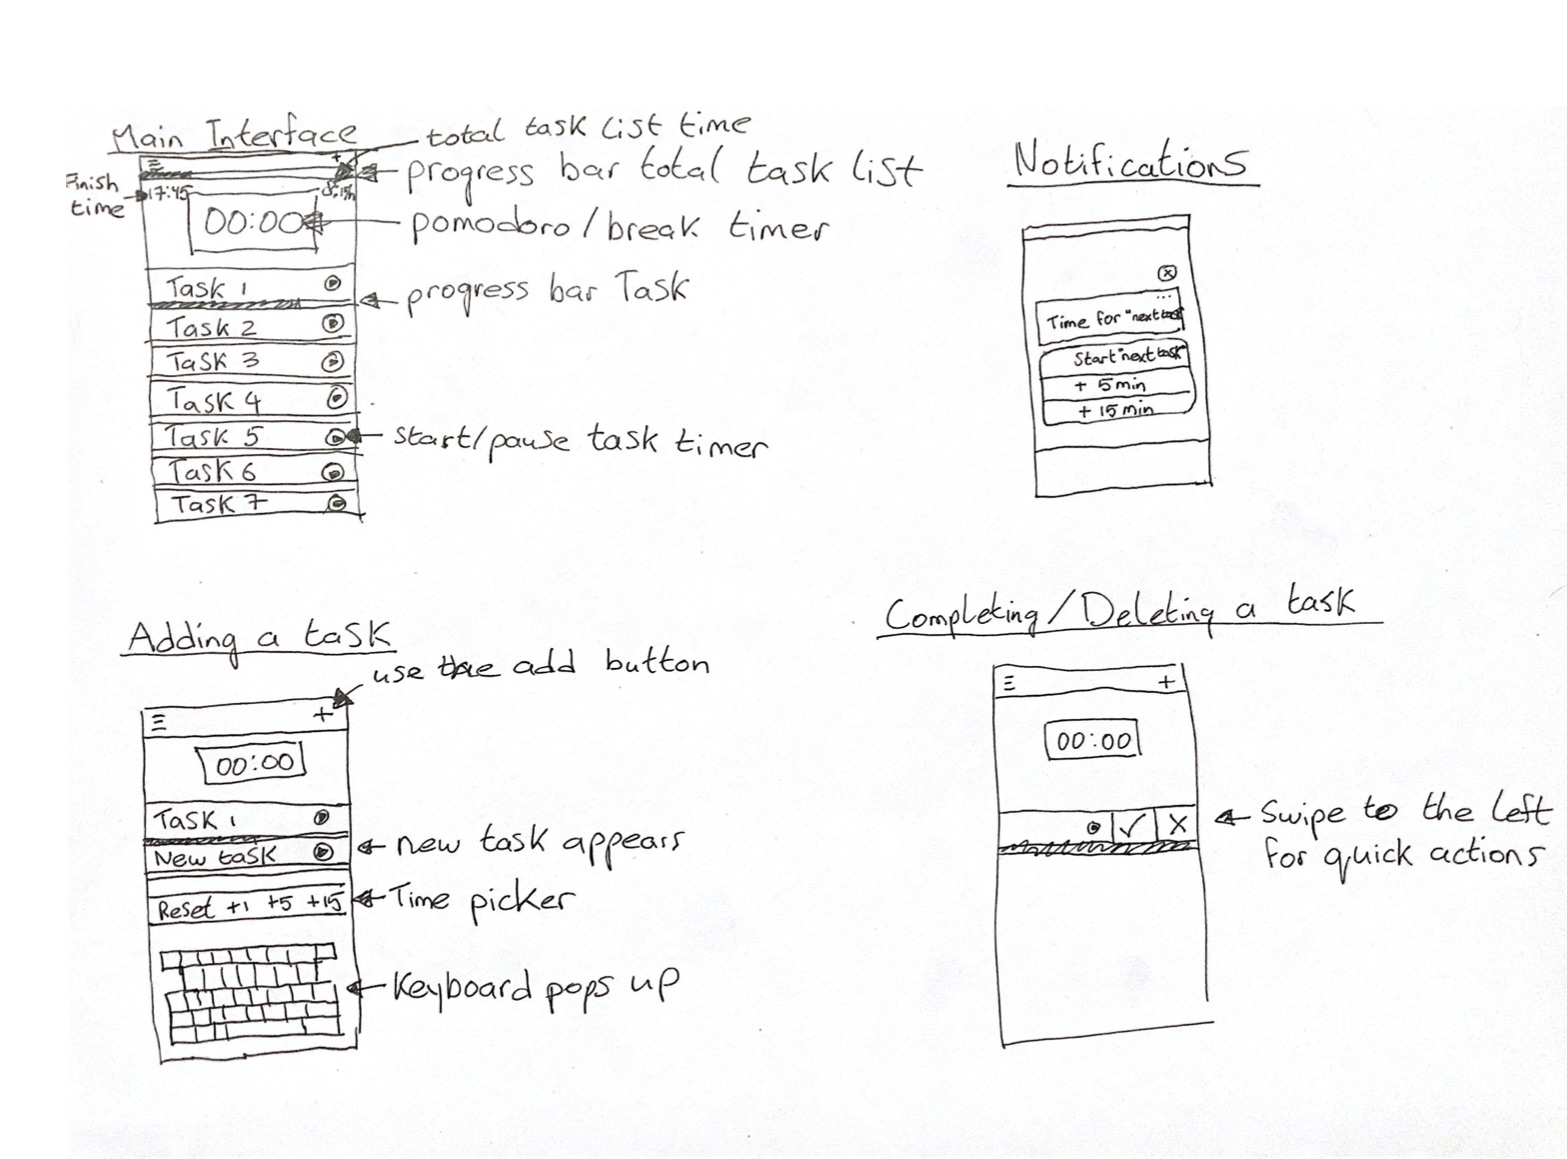 Main Interface
total task list time
progress bar total task list
Finish
time
17:45
00:00
pomodoro/break timer
Task 1
progress bar Task
Task 2
Task 3
Task 4
Task 5
start/pause task timer
Task 6
Task 7
Notifications
Time for "next task"
Start "next task"
+ 5 min
+ 15 min
Adding a task
use the add button
+
00:00
Task 1
New task
new task appears
Reset +1 +5 +15
Time picker
Keyboard pops up
Completing/Deleting a task
+
00:00
✓ X
Swipe to the left
for quick actions